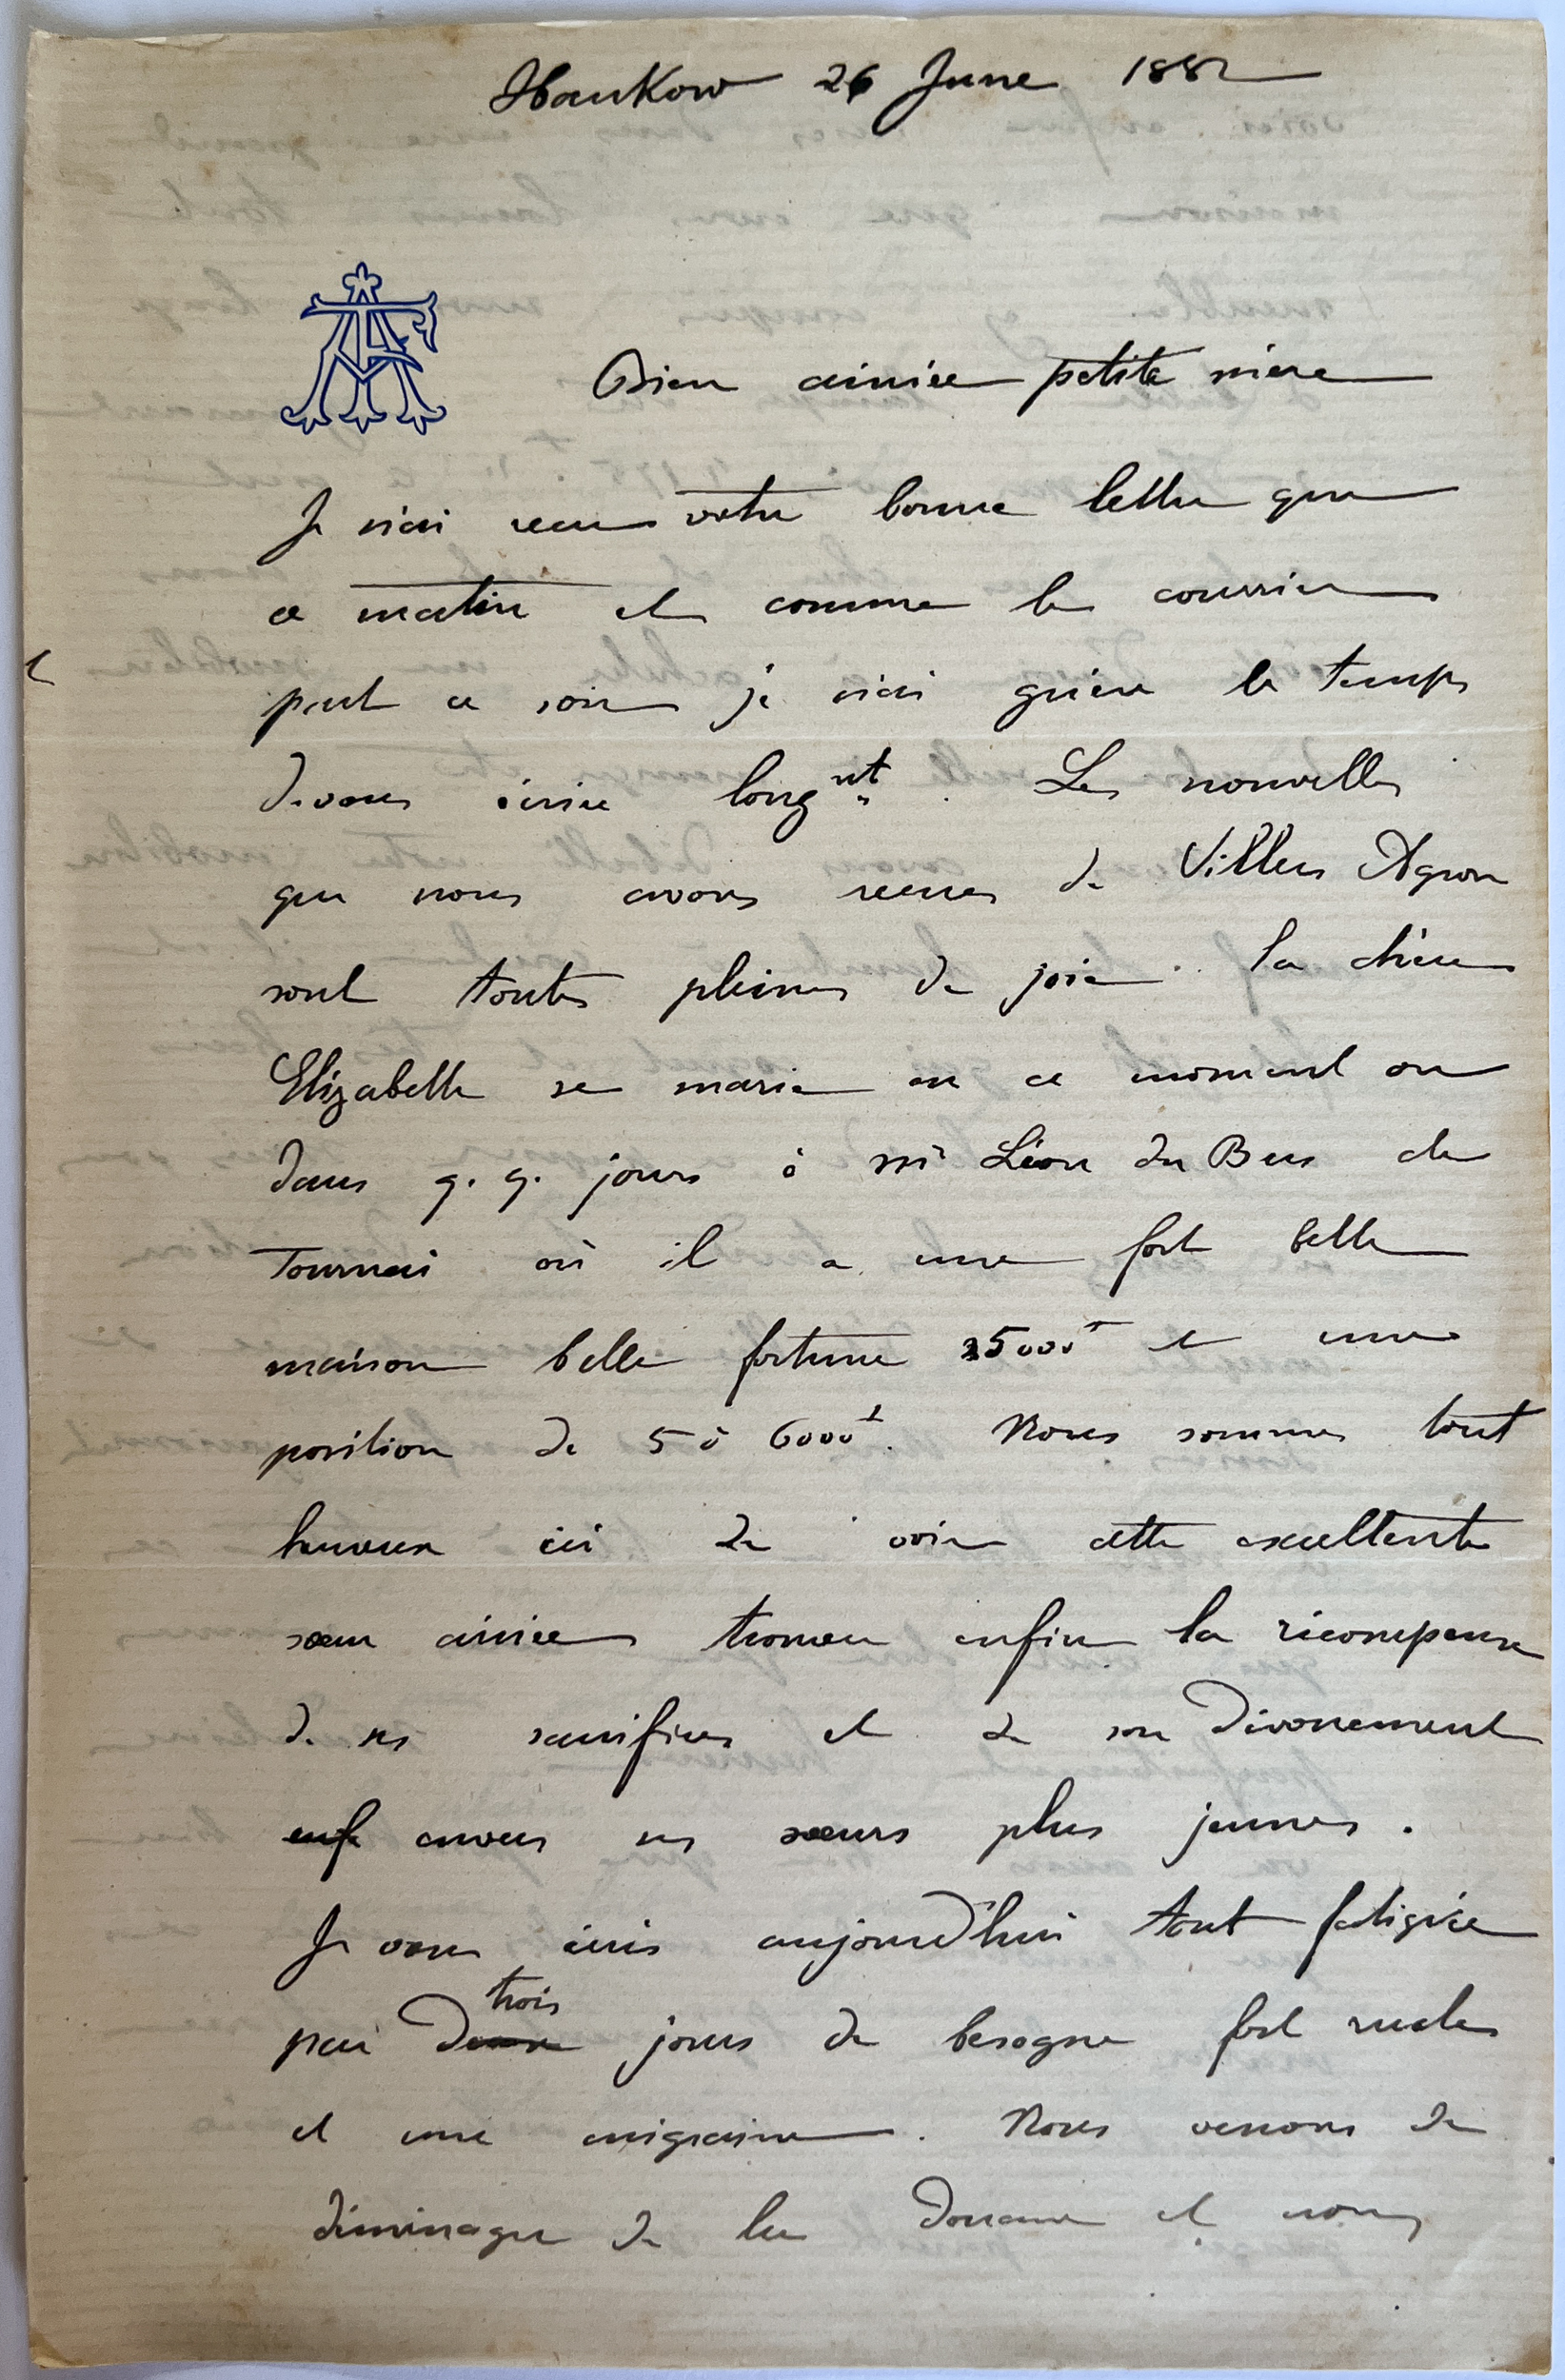 Hankow 26 June 1882
Bien aimée petite mère
Je n'ai reçu votre bonne lettre que
ce matin et comme le courrier
part ce soir je n'ai guère le temps
de vous écrire longnt. Les nouvelles
que nous avons reçues de Villers Agron
sont toutes pleines de joie. la chère
Elizabeth se marie en ce moment ou
dans q. q. jours à mr Léon du Bus de
Tournai où il a une fort belle
maison belle fortune 25000f et une
position de 5 à 6000f. Nous sommes tout
heureux ici de voir cette excellente
sœur aînée trouver enfin la récompense
de ses sacrifices et de son dévouement
enf envers ses sœurs plus jeunes.
Je vous écris aujourd'hui tout fatiguée
par deux trois jours de besogne fort rudes
et une migraine. Nous venons de
déménager de la Douane et nous